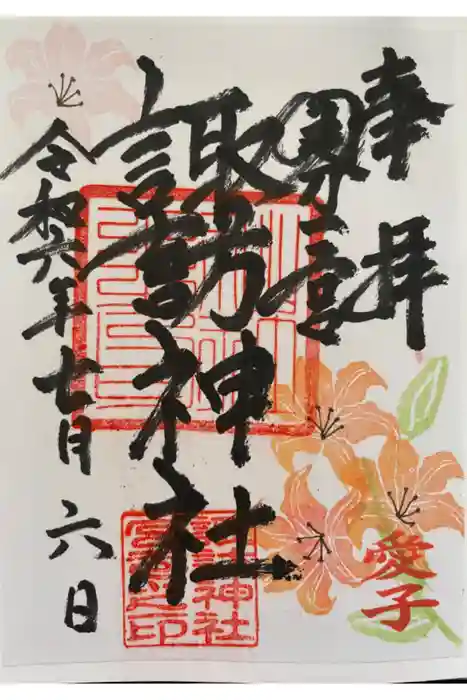 奉拝
愛子
諏訪神社
諏訪神社
宮司之印
令和六年七月六日